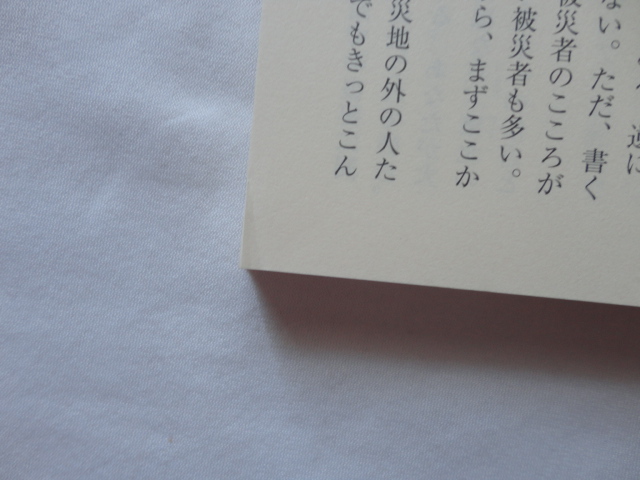 逆に
ない。ただ、書く
被災者のこころが
被災者も多い。
ら、まずここか
災地の外の人た
でもきっとこん